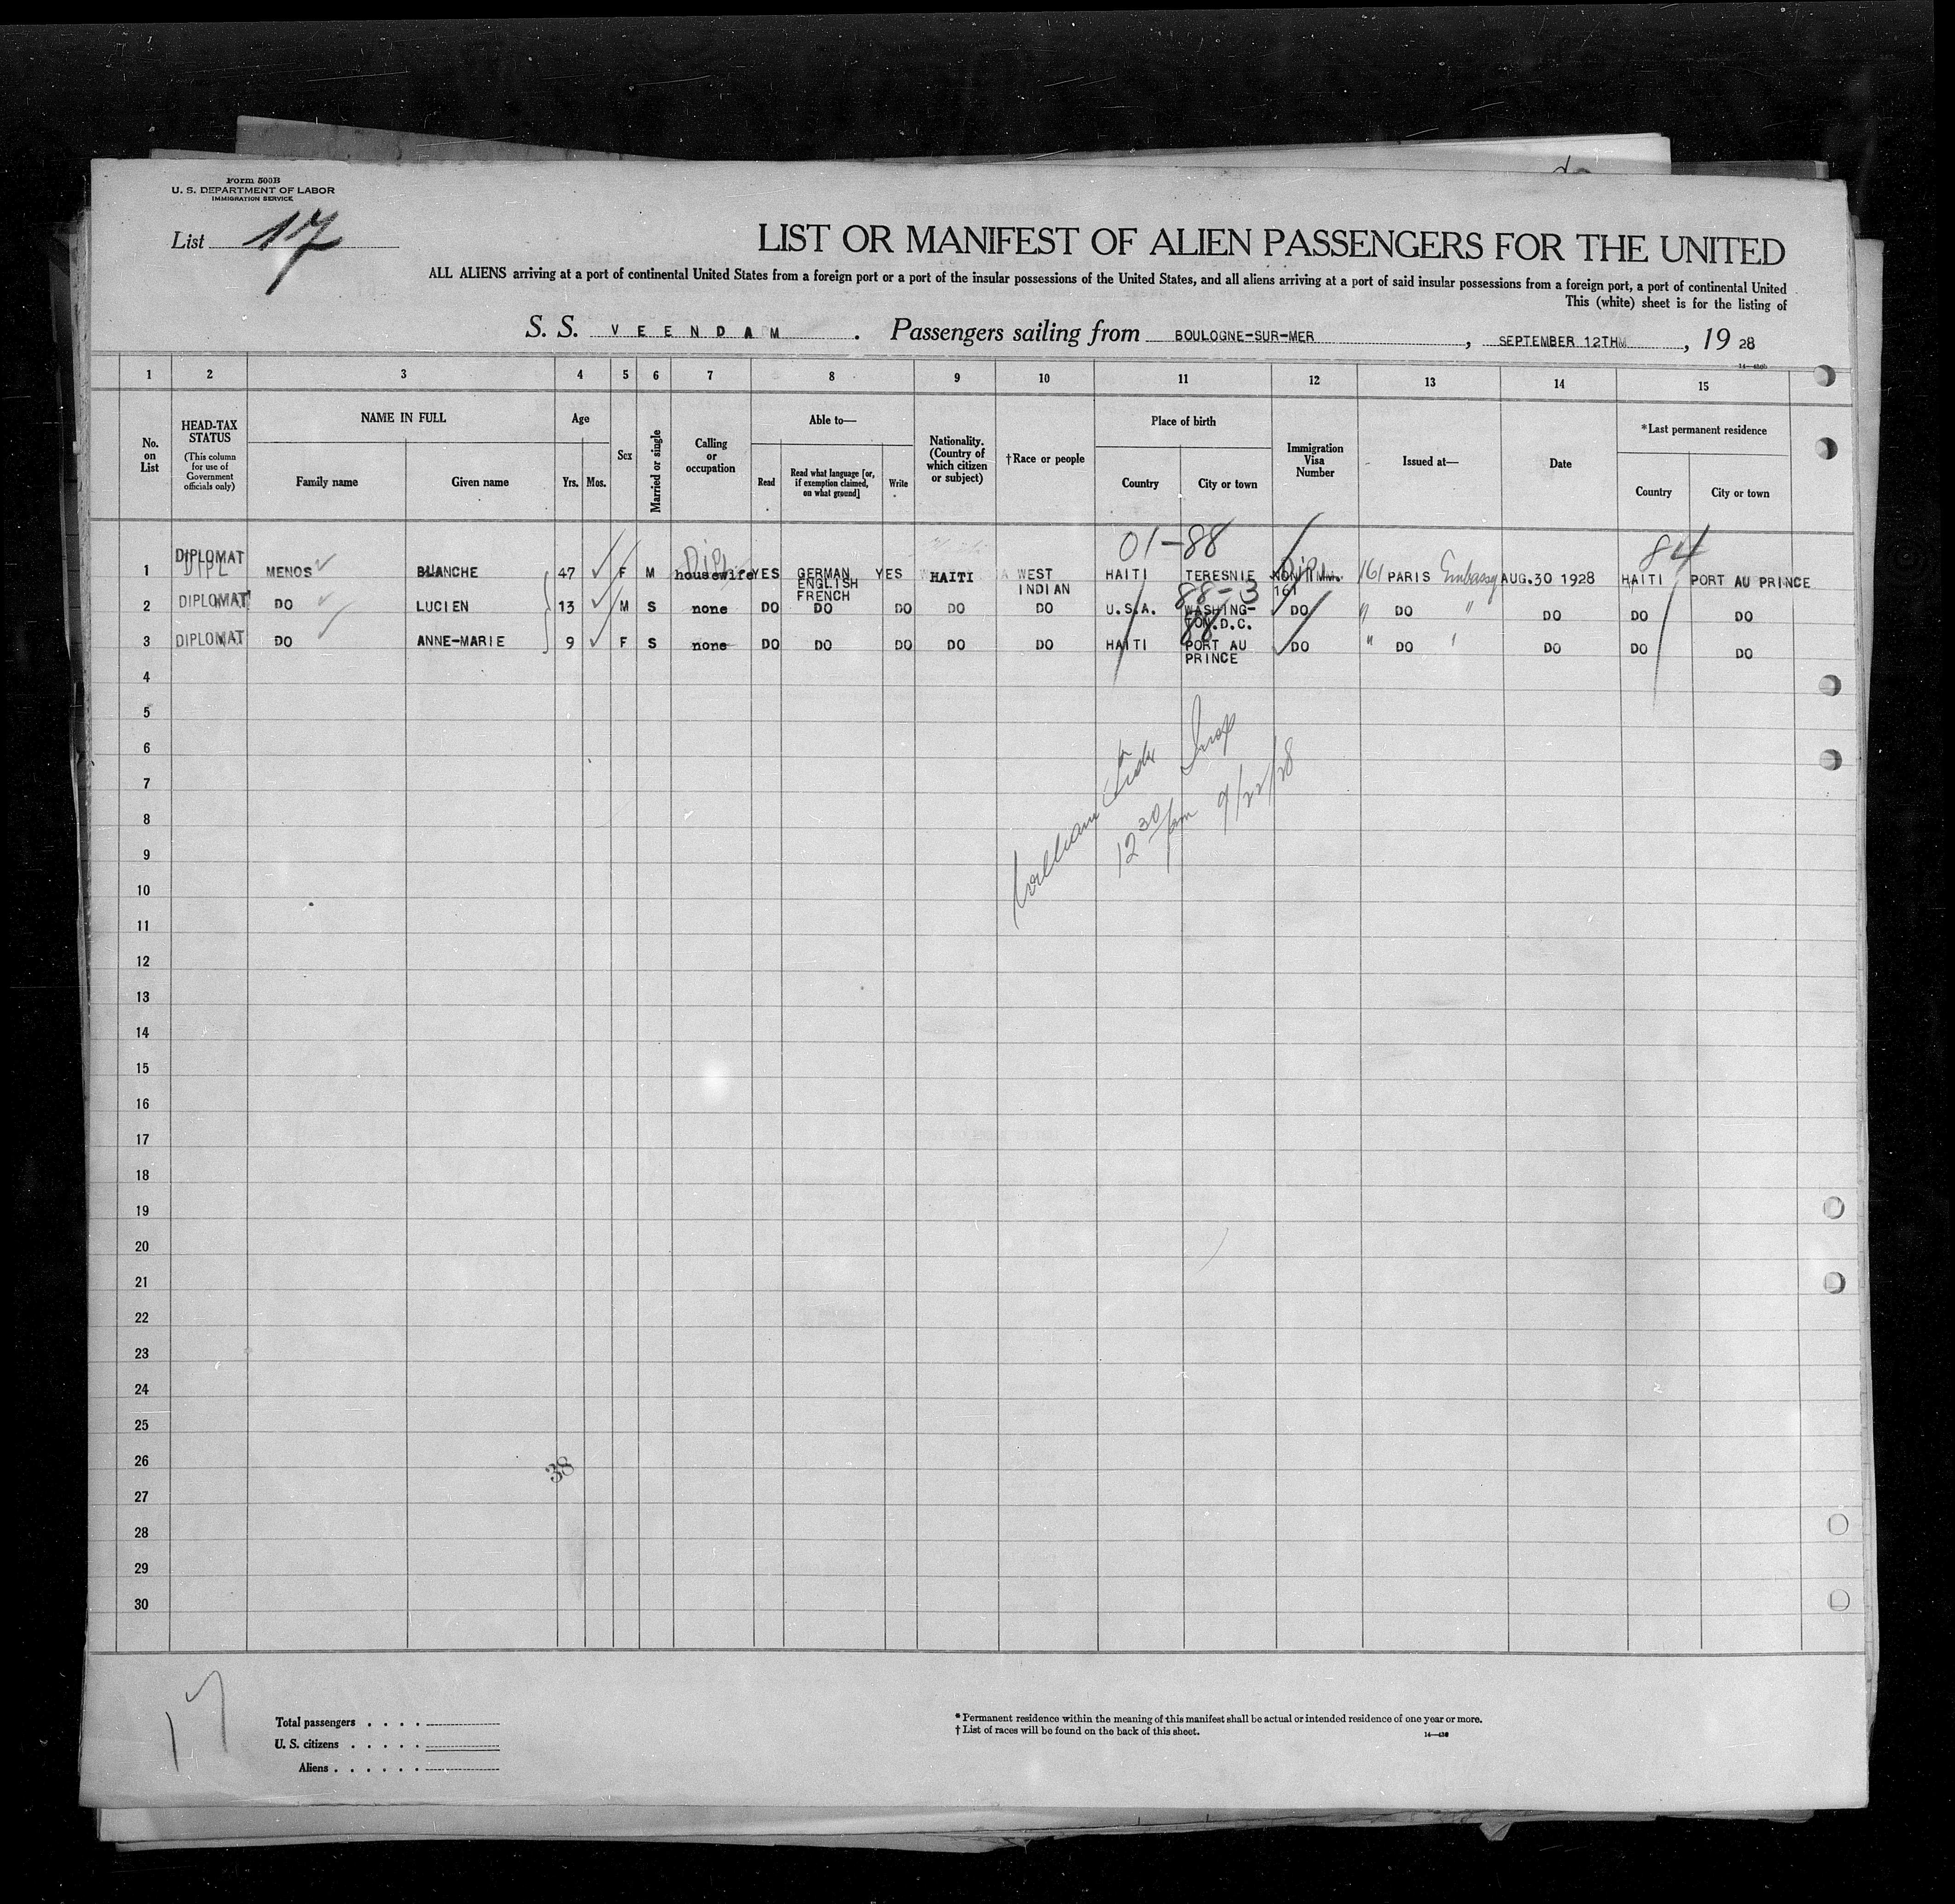 Form 500B
U. S. DEPARTMENT OF LABOR
IMMIGRATION SERVICE
List 17
LIST OR MANIFEST OF ALIEN PASSENGERS FOR THE UNITED
ALL ALIENS arriving at a port of continental United States from a foreign port or a port of the insular possessions of the United States, and all aliens arriving at a port of said insular possessions from a foreign port, a port of continental United
This (white) sheet is for the listing of
S. S. VEENDAM. Passengers sailing from BOULOGNE-SUR-MER, SEPTEMBER 12TH, 1928
1 2 3 4 5 6 7 8 9 10 11 12 13 14 15
No. on List
HEAD-TAX STATUS
(This column for use of Government officials only)
NAME IN FULL
Family name Given name
Age
Yrs. Mos.
Sex
Married or single
Calling or occupation
Able to—
Read Read what language [or, if exemption claimed, on what ground] Write
Nationality. (Country of which citizen or subject)
†Race or people
Place of birth
Country City or town
Immigration Visa Number
Issued at—
Date
*Last permanent residence
Country City or town
01-88 84
DIPLOMAT
1 DIPL MENOS BLANCHE 47 F M housewife Dipl YES GERMAN ENGLISH FRENCH YES HAITI WEST INDIAN HAITI TERESNIE NONIMM. 161 161 PARIS Embassy AUG.30 1928 HAITI PORT AU PRINCE
88-3
2 DIPLOMAT DO LUCIEN 13 M S none DO DO DO DO DO U.S.A. WASHINGTON.D.C. DO " DO " DO DO DO
88
3 DIPLOMAT DO ANNE-MARIE 9 F S none DO DO DO DO DO HAITI PORT AU PRINCE DO " DO " DO DO DO
4
5
6
7
8
9
10
11
12
13
14
15
16
17
18
19
20
21
22
23
24
25
26
27
28
29
30
William Insp
12 30/pm 9/22/28
38
17
Total passengers . . . .
U. S. citizens . . . . .
Aliens . . . . . .
* Permanent residence within the meaning of this manifest shall be actual or intended residence of one year or more.
† List of races will be found on the back of this sheet.